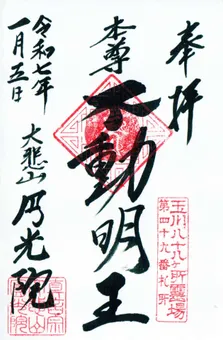 奉拝
玉川八十八ヶ所霊場
第四十九番札所
本尊
不動明王
大悲山
円光院
令和七年
一月五日